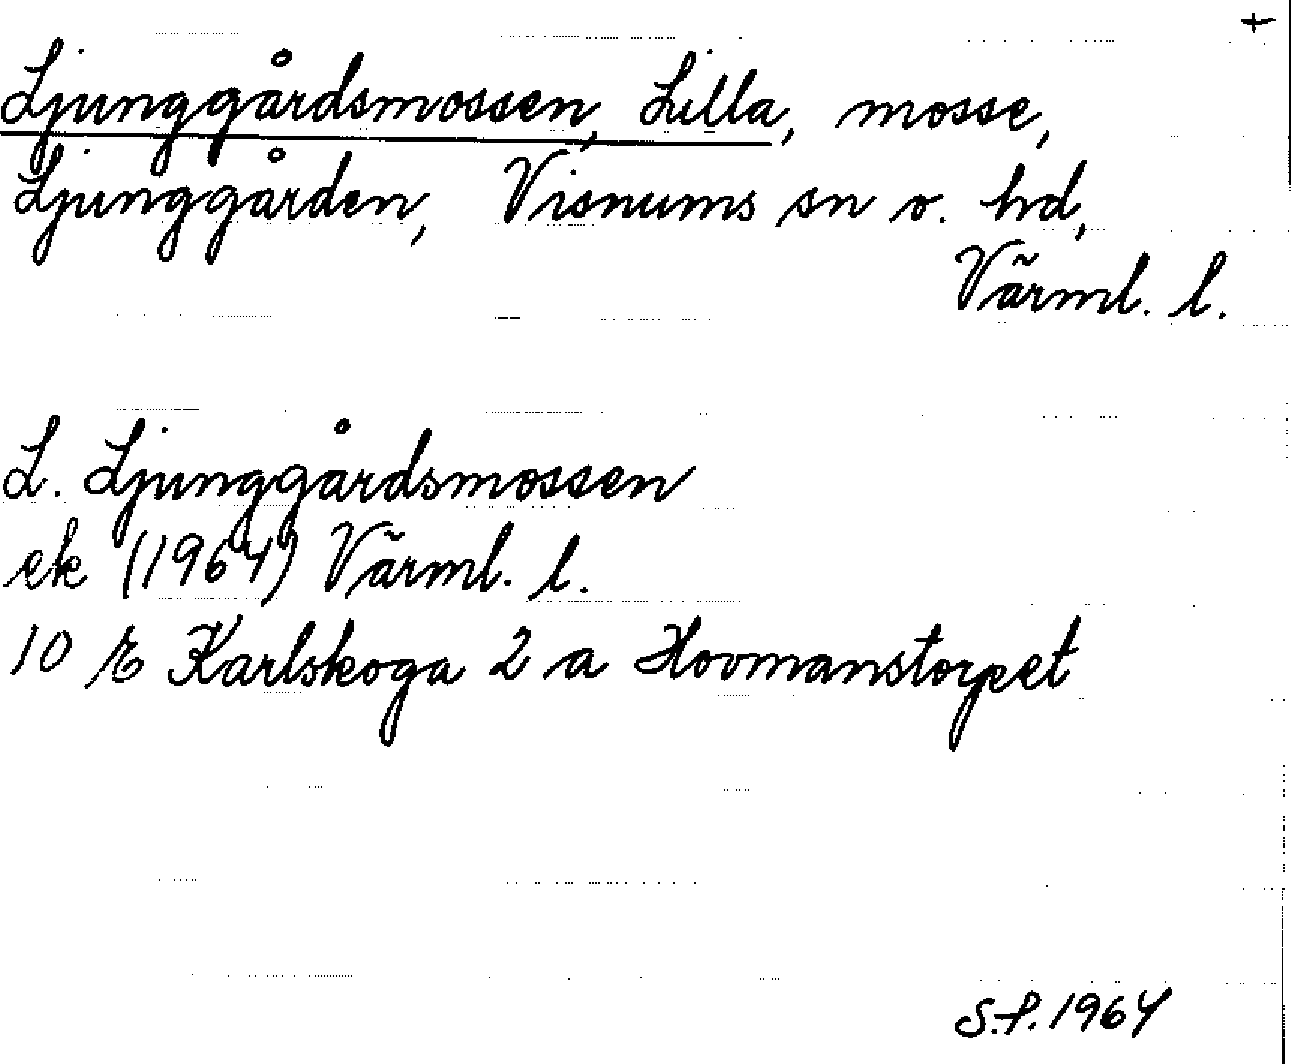 +
Ljunggårdsmossen, Lilla, mosse,
Ljunggården, Visnums sn o. hd,
Värml. l.
L. Ljunggårdsmossen
ek (1964) Värml. l.
10 E Karlskoga 2 a Hovmanstorpet
S.P. 1964